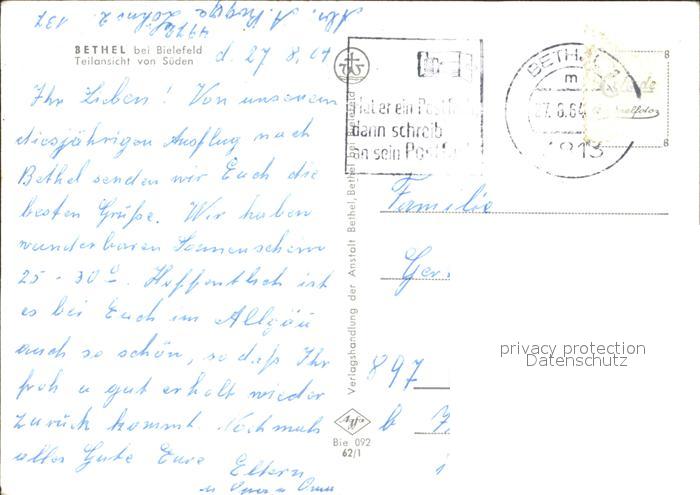 137
4972
BETHEL bei Bielefeld
Teilansicht von Süden
d. 27 8. 64
Ihr Lieben! Von unserem
diesjährigen Ausflug nach
Bethel senden wir Euch die
besten Grüße. Wir haben
wunderbaren Sonnenschein
25 - 30°. Hoffentlich ist
es bei Euch im Allgäu
auch so schön, so daß Ihr
froh u gut erholt wieder
zurück kommt. Nochmals
alles Gute Eure Eltern
u Opa u Oma
Verlagshandlung der Anstalt Bethel, Bethel bei Bielefeld
Agfa
Bie 092
62/1
Hat er ein Postfach
dann schreib
an sein Postfach
BETHEL
m
27. 8. 64
4813
8
8
Familie
897
privacy protection
Datenschutz